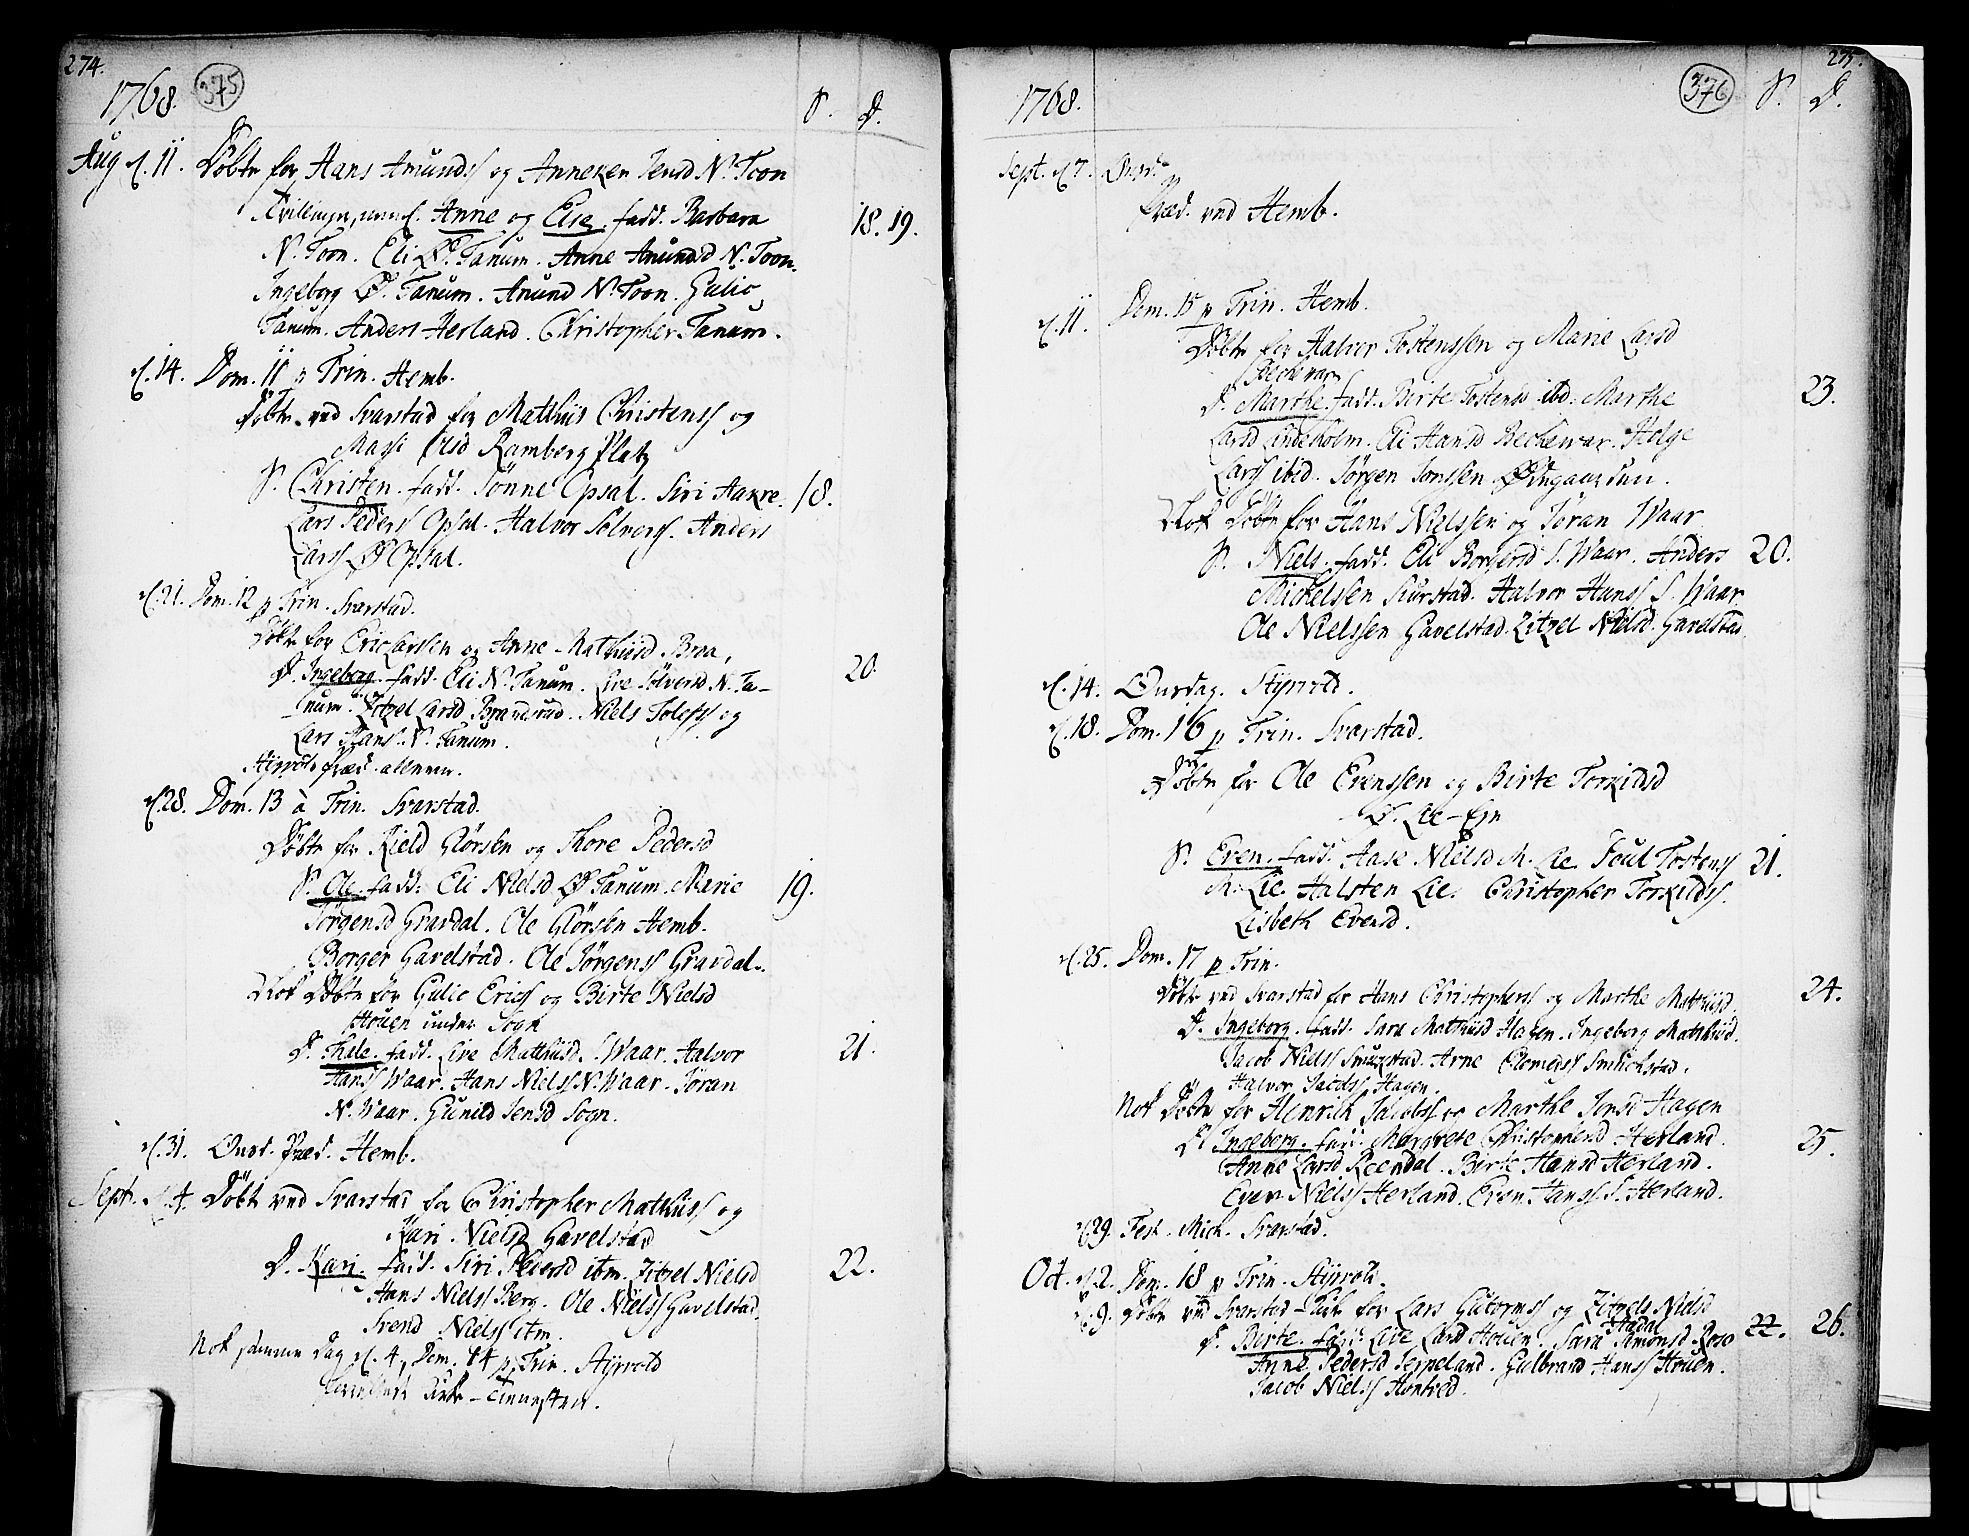 274.
1768. 375 S. D.
Aug d. 11. Döbte for Hans Amundss og Anneken Jensd N. Toon
Tvillinger, nemL. Anne og Else. fadd. Barbara 18. 19.
N. Toon. Eli Ø. Tanum. Anne Amundsd N. Toon.
Ingeborg Ø. Tanum. Amund N. Toon. Gulic
Tanum. Anders Herland. Christopher Tanum.
d. 14. Dom. 11 p Trin. Hemb.
Döbte ved Svarstad for Matthis Christenss og
Ramberg Platz
S. Christen. fadd. Tønne Opsal. Siri Aakre. 18.
Lars Pederss Opsal. Halvor Sølverss. Anders
Larss Ø Opsal.
d. 21. Dom. 12 p Trin. Svarstad.
Döbte for Eric Larssen og Anne Mathiisd Broa,
D. Ingeborg. fadd. Eli N. Tanum. Live Sølversd N. Ta- 20.
num. Zitzel Larsd Brandstad. Niels Tolefss og
Lars Hanss. N. Tanum.
d. 28. Dom. 13 à Trin. Svarstad.
Döbte for Kield Glørsen og Thore Pedersd
S. Ole. fadd. Eli Nielsd Ø Tanum. Marie 19.
Jörgensd Gravdal. Ole Glørsen Hemb.
Borger Gavelstad. Ole Jørgenss Gravdal.
Nok Döbte for Gulic Ericss og Birte Nielsd
Houen under Sogn
D. Thale. fadd. Live Matthiisd. S. Waar. Halvor 21.
Hanss Waar. Hans Nielss N. Waar. Jøran
N. Waar. Gunild Jensd Sogn.
d. 31. Onsd. Præd. Hemb.
Sept. d. 4. Döbt ved Svarstad for Christopher Mathiss og
Kari Nielsd Gavelstad
D. Kari. fadd. Siri Pedersd itm. Zitzel Nielsd 22.
Hans Nielss Berg. Ole Nielss Gavelstad.
Svend Nielss itm.
Nok samme Dag d. 4, Dom. 14 p. Trin. Styrvold
275.
1768. 376 S. D.
Sept. d. 7. Onsd.
Præd. ved Hemb.
d. 11. Dom. 15 p Trin. Hemb.
Döbte for Halvor Tostenssen og Marie Larsd
Bechevar
D. Marthe. fadd. Birte Tostensd ibd. Marthe 23.
Larsd Lindeholm. Eli Hansd Bechevar. Helge
Larss ibid. Jørgen Jonssen Ødegaarden.
Nok Döbte for Hans Nielssen og Jøran Waar
S. Niels. fadd. Eli Borgersd S. Waar. Anders 20.
Michelssen Skurstad. Halvor Hanss S. Waar
Ole Nielssen Gavelstad. Zitzel Nielsd. Gavelstad
d. 14. Onsdag. Styrvold.
d. 18. Dom. 16 p Trin. Svarstad.
Döbte for Ole Evenssen og Birte Torkildsd
Ø. Lie-Eje
S. Even. fadd. Aase Nielsd M. Lie. Poul Tostenss 21.
M. Lie. Halsten Lie. Christopher Torkildss.
Lisbeth Evensd.
d. 25. Dom. 17 p Trin.
Döbte ved Svarstad for Hans Christopherss og Marthe Matthiisd. 24.
D. Ingeborg. fadd. Sara Mathiisd Hagen. Ingeborg Matthiisd.
Jacob Nielss Smukstad. Arne Clomerss Smukstad.
Halvor Jacobss Hagen.
Nok Döbte for Henrich Jacobss og Marthe Jensd Hagen
D. Ingeborg. fadd. Margrete Christophersd Herland. 25.
Anne Larsd Reendal. Birte Hansd Herland.
Even Nielss Herland. Even Hanss S. Herland.
d. 29. Fest. Mich. Svarstad.
Oct. d. 2. Dom. 18 p Trin. Styrvold.
d. 9. Döbte ved Svarstad-Kirke for Lars Gutormss og Zitzels Nielsd
Aadal
D. Birte. fadd. Live Larsd Houen. Sara Simonsd Roso 22. 26.
Anne Pedersd Seppeland. Gulbrand Hanss Houen.
Jacob Nielss Hontved.